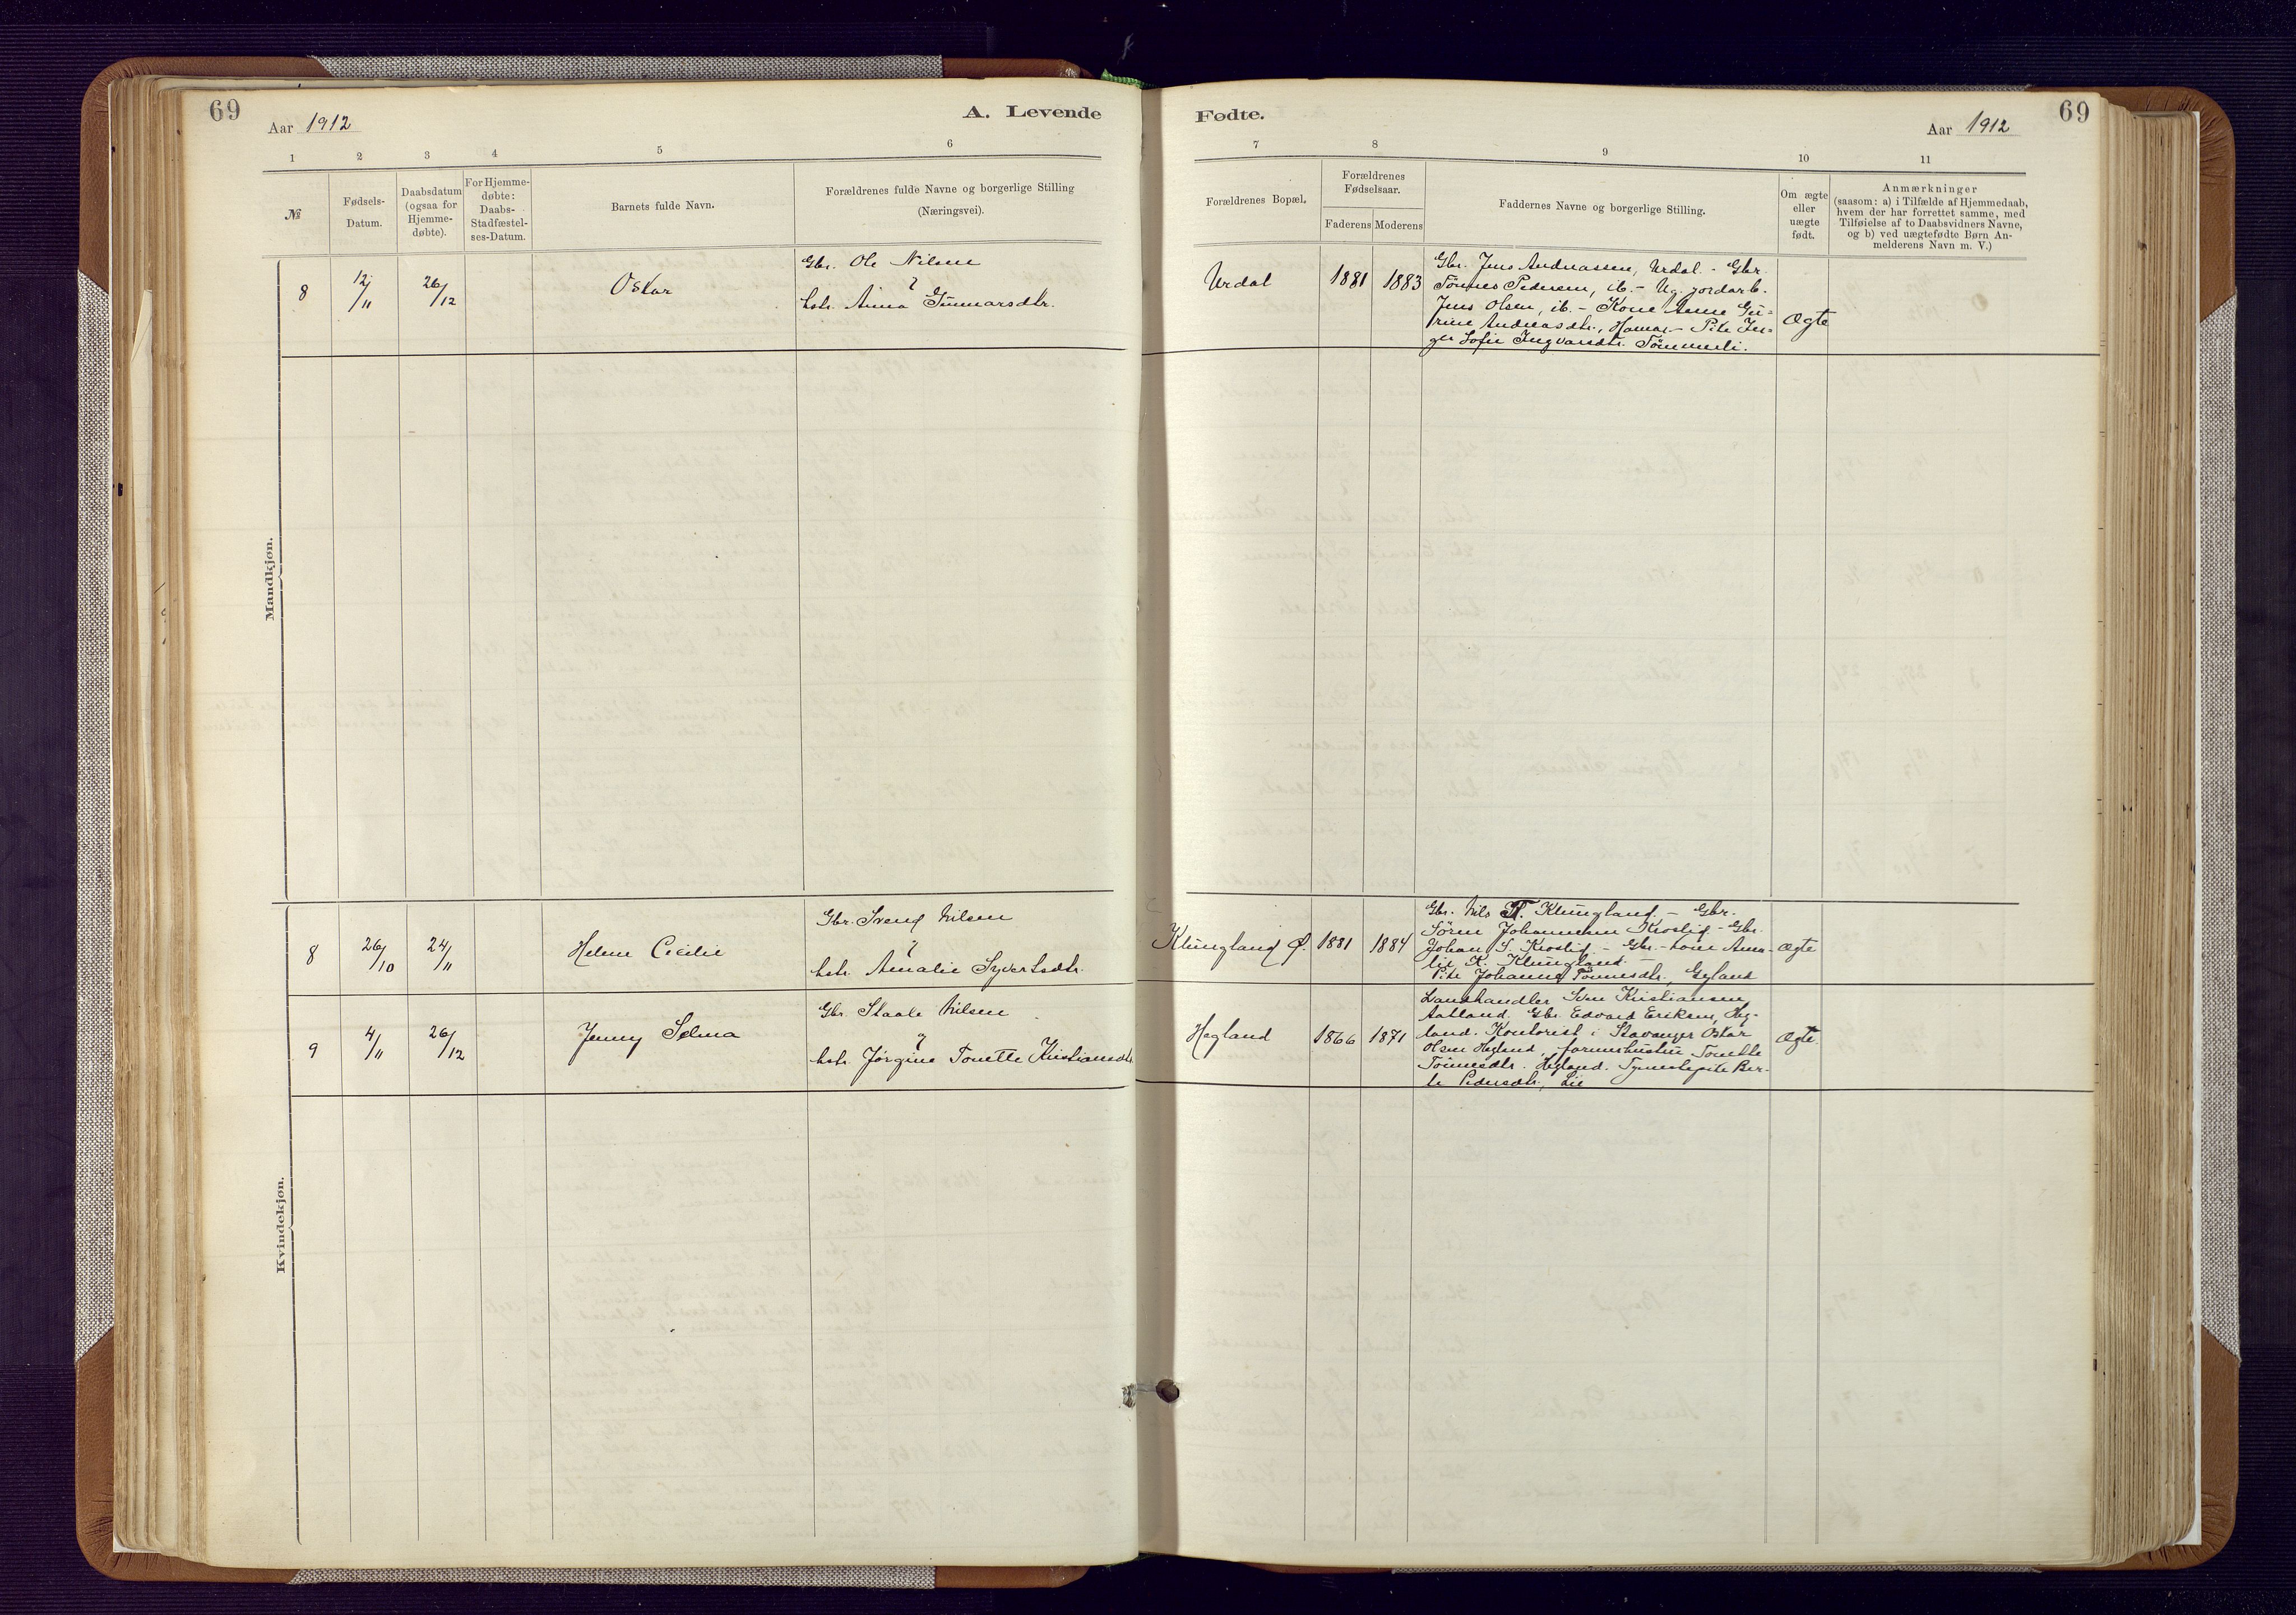 69
Aar 1912
A. Levende
1 2 3 4 5 6
№
Fødsels-
Datum.
Daabsdatum
(ogsaa for
Hjemme-
døbte).
For Hjemme-
døbte:
Daabs-
Stadfæstel-
ses-Datum.
Barnets fulde Navn.
Forældrenes fulde Navne og borgerlige Stilling
(Næringsvei).
Mandkjøn.
8 12/11 26/12 Oskar
Gbr. Ole Nilsen
hstr. Anna Gunnarsdtr.
Kvindekjøn.
8 26/10 24/11 Helene Cecilie
Gbr. Svend Nilsen
hstr. Amalie Syvertsdtr.
9 4/11 26/12 Jenny Selma
Gbr. Staale Nilsen
hstr. Jørgine Tonette Kristiansdtr.
Fødte.
Aar 1912
69
7 8 9 10 11
Forældrenes Bopæl.
Forældrenes
Fødselsaar.
Faderens Moderens
Faddernes Navne og borgerlige Stilling.
Om ægte
eller
uægte
født.
Anmærkninger
(saasom: a) i Tilfælde af Hjemmedaab,
hvem der har forrettet samme, med
Tilføielse af to Daabsvidners Navne,
og b) ved uægtefødte Børn An-
melderens Navn m. V.)
Urdal 1881 1883
Gbr. Jens Andreassen, Urdal. - Gbr.
Tønnes Pedersen, ib. - Ug. jordarb.
Jens Olsen, ib. - Kone Anne Gu-
rine Andreasdtr., Hamar - Pike In-
ger Sofie Ingvarsdtr. Tømmerli.
Ægte
Klungland Ø. 1881 1884
Gbr. Nils T. Klungland. - Gbr.
Sören Johannesen Kroslid - Gbr.
Johan S. Kroslid - Gbr.-kone Ama-
lie K. Klungland. -
Pike Johanne Tønnesdtr., Gyland
Ægte
Hegland 1866 1871
Landhandler Sven Kristiansen,
Aatland. Gbr. Edvard Eriksen, Heg-
land. Kontorist i Stavanger Oskar
Olsen Hegland, Tonette
Tønnesdtr. Hegland. Tjenestepike Ber-
te Pedersdtr., Lie
Ægte.